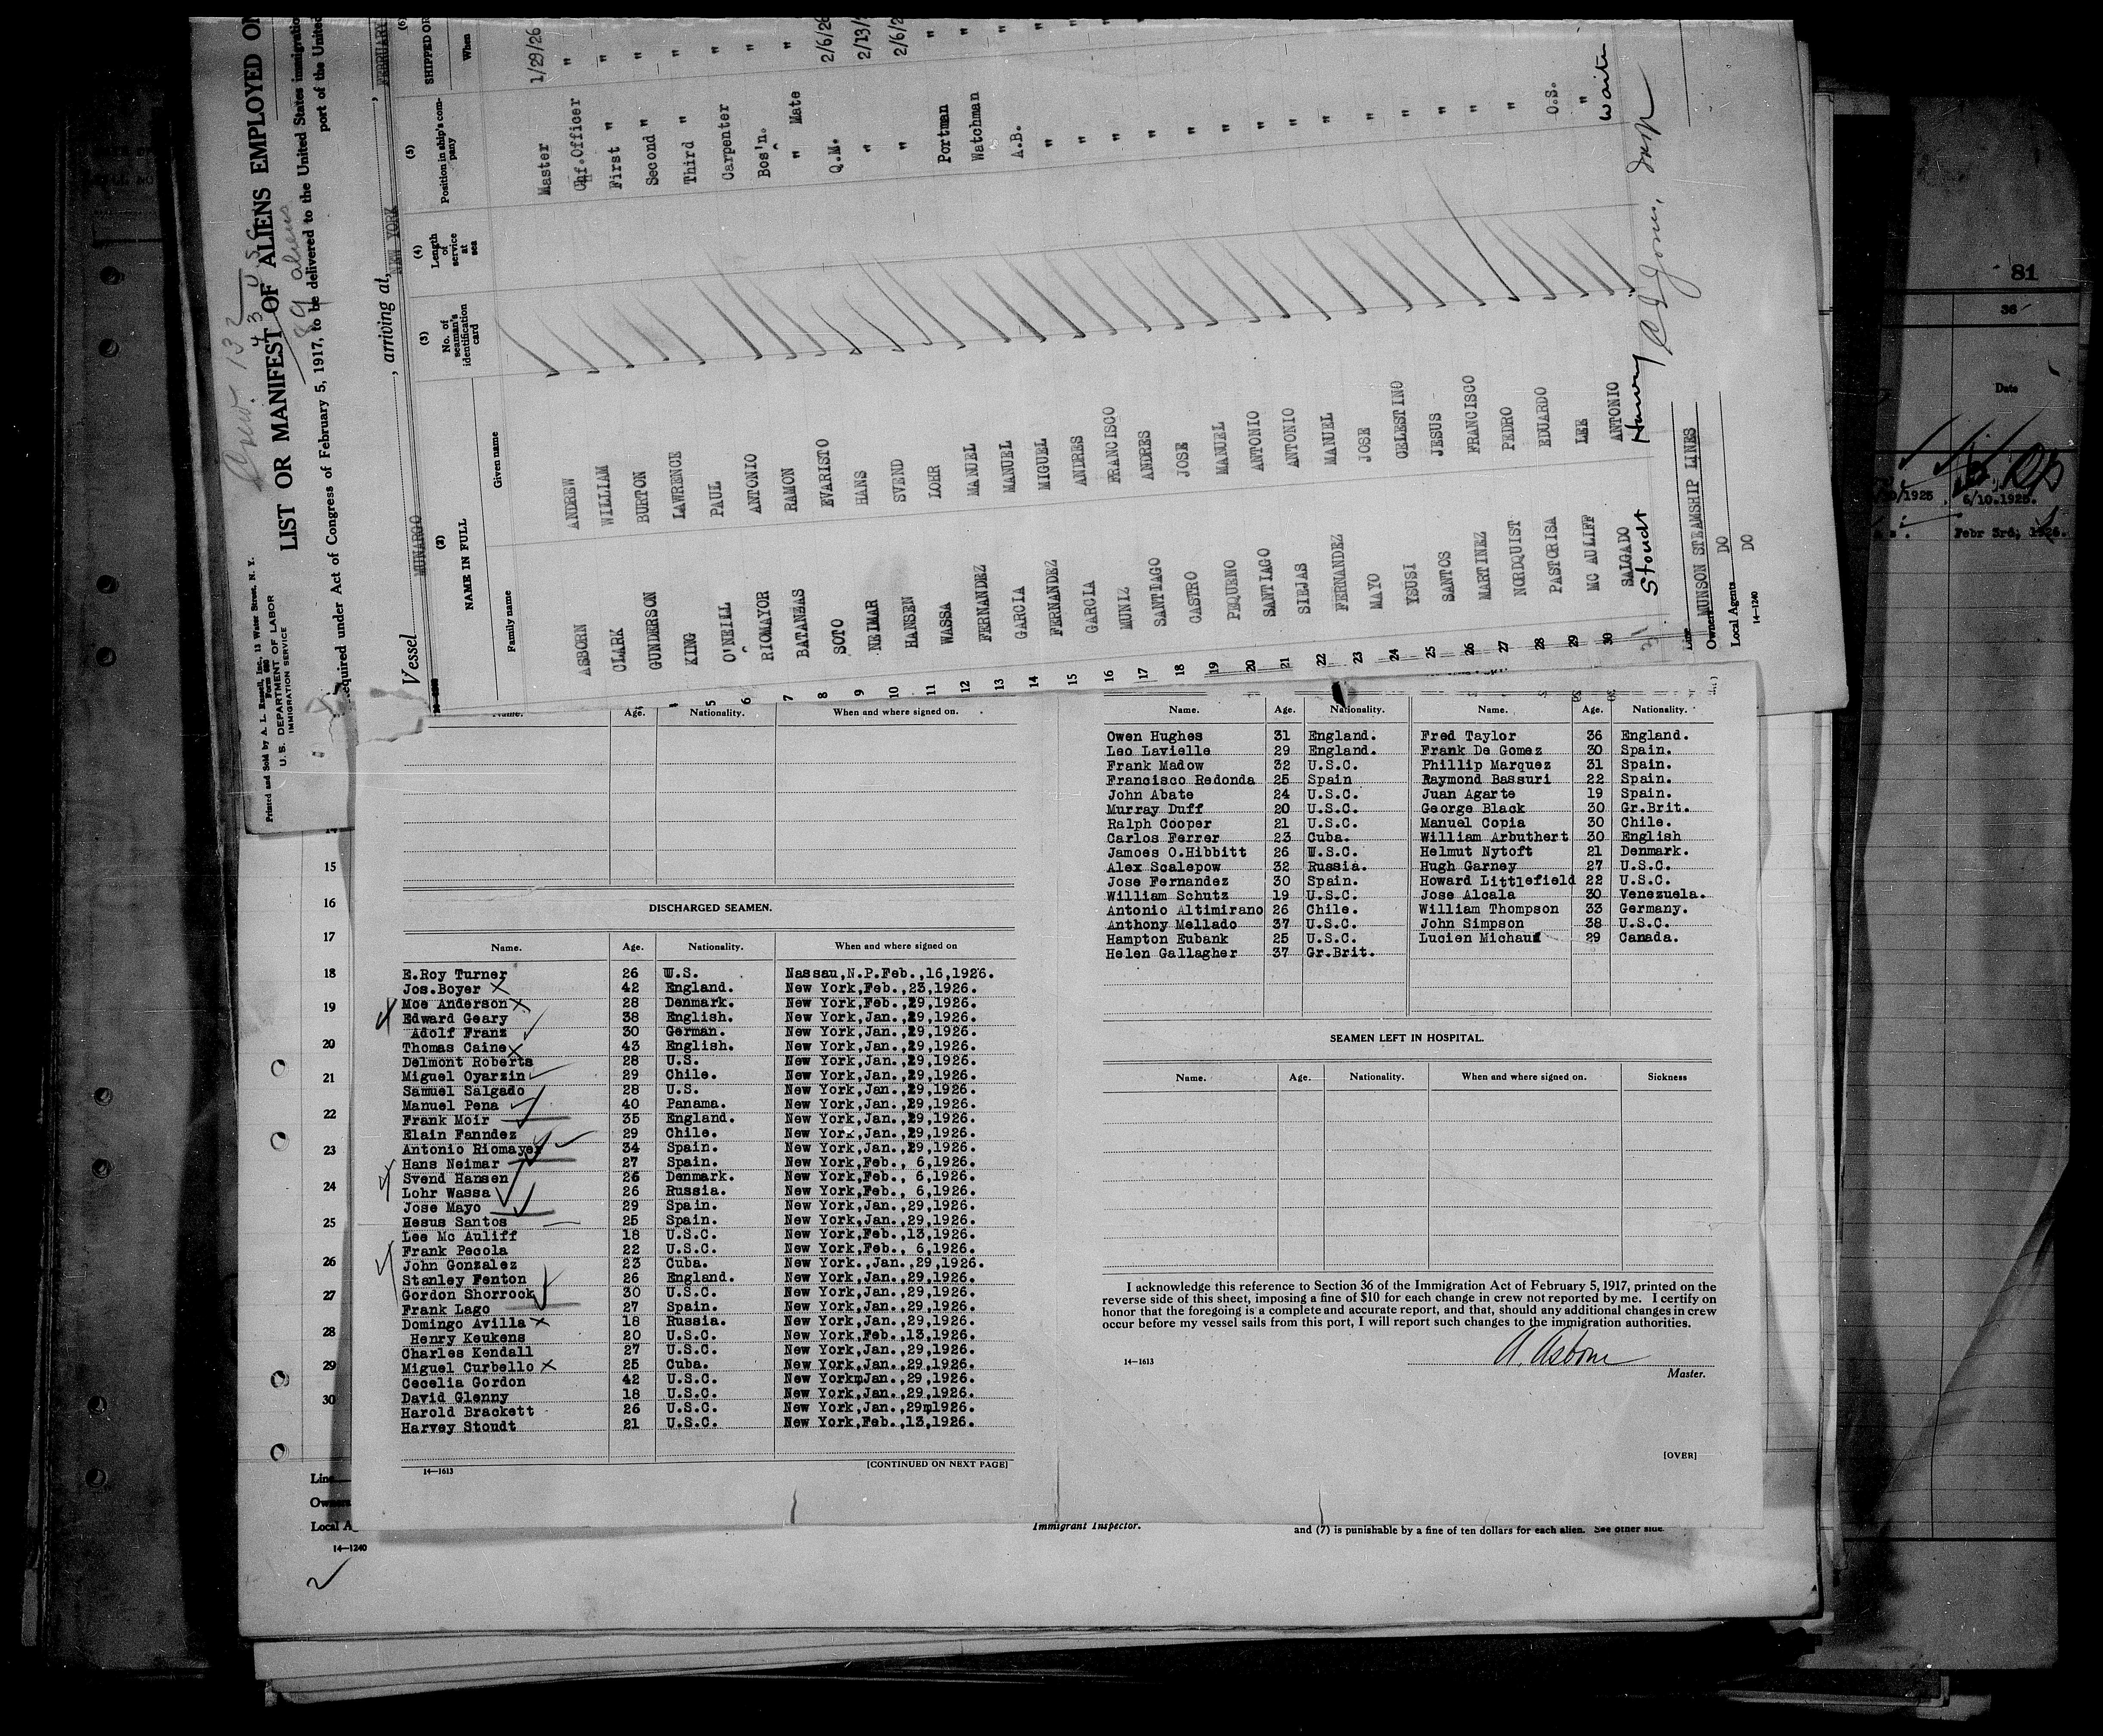 LIST OR MANIFEST OF ALIENS EMPLOYED ON
89 aliens
Required under Act of Congress of February 5, 1917, to be delivered to the United States immigration
port of the United
Printed and Sold by A. L. Russell, Inc., 13 Water Street, N. Y.
Form 680
U. S. DEPARTMENT OF LABOR
IMMIGRATION SERVICE
Vessel MUNARGO, arriving at, NEW YORK, FEBRUARY
(2) NAME IN FULL (3) No. of seaman's identification card (4) Length of service at sea (5) Position in ship's company (6) SHIPPED OR
Family name Given name When
ASBORN ANDREW Master 1/29/26
CLARK WILLIAM Chf.Officer "
GUNDERSON BURTON First " "
KING LAWRENCE Second " "
5 O'NEILL PAUL Third " "
6 RIOMAYOR ANTONIO Carpenter "
7 BATANZAS RAMON Bos'n. "
8 SOTO EVARISTO " Mate "
9 NEIMAR HANS Q.M. 2/6/26
10 HANSEN SVEND " 2/13/
11 WASSA LOHR " 2/6/2
12 FERNANDEZ MANUEL Portman "
13 GARCIA MANUEL Watchman "
14 FERNANDEZ MIGUEL A.B. "
15 GARCIA ANDRES " "
16 MUNIZ FRANCISCO " "
17 SANTIAGO ANDRES "
18 CASTRO JOSE "
19 PEQUENO MANUEL "
20 SANTIAGO ANTONIO "
21 SIEJAS ANTONIO "
22 FERNANDEZ MANUEL "
23 MAYO JOSE "
24 YSUSI CELESTINO "
25 SANTOS JESUS "
26 MARTINEZ FRANCISCO "
27 NORDQUIST PEDRO "
28 PASTORISA EDUARDO "
29 MC AULIFF LEE O.S.
30 SALGADO ANTONIO "
31 Stoudt Harvey Waiter
Line MUNSON STEAMSHIP LINES
Owners DO
Local Agents DO
14-1240
81
36
Date
6/10.1925.
Febr 3rd, 1926.
Name. Age. Nationality. When and where signed on.
DISCHARGED SEAMEN.
Name. Age. Nationality. When and where signed on
E.Roy Turner 26 U.S. Nassau,N.P.Feb.,16,1926.
Jos.Boyer X 42 England. New York,Feb.,23,1926.
Moe Anderson X 28 Denmark. New York,Feb.,29,1926.
Edward Geary 38 English. New York,Jan.,29,1926.
Adolf Franz 30 German. New York,Jan.,29,1926.
Thomas Caine X 43 English. New York,Jan.,29,1926.
Delmont Roberts 28 U.S. New York,Jan.,29,1926.
Miguel Oyarzin 29 Chile. New York,Jan.,29,1926.
Samuel Salgado 28 U.S. New York,Jan.,29,1926.
Manuel Pena 40 Panama. New York,Jan.,29,1926.
Frank Moir 35 England. New York,Jan.,29,1926.
Elain Fanndez 29 Chile. New York,Jan.,29,1926.
Antonio Riomayer 34 Spain. New York,Jan.,29,1926.
Hans Neimar 27 Spain. New York,Feb., 6,1926.
Svend Hansen 26 Denmark. New York,Feb., 6,1926.
Lohr Wassa 26 Russia. New York,Feb., 6,1926.
Jose Mayo 29 Spain. New York,Jan.,29,1926.
Hesus Santos 25 Spain. New York,Jan.,29,1926.
Lee Mc Auliff 18 U.S.C. New York,Feb.,13,1926.
Frank Pecola 22 U.S.C. New York,Feb., 6,1926.
John Gonzalez 23 Cuba. New York.,Jan.,29,1926.
Stanley Fenton 26 England. New York,Jan.,29,1926.
Gordon Shorrock 30 U.S.C. New York,Jan.,29,1926.
Frank Lago 27 Spain. New York,Jan.,29,1926.
Domingo Avilla X 18 Russia. New York,Jan.,29,1926.
Henry Keukens 20 U.S.C. New York,Feb.,13,1926.
Charles Kendall 27 U.S.C. New York,Jan.,29,1926.
Miguel Curbello X 25 Cuba. New York,Jan.,29,1926.
Cecelia Gordon 42 U.S.C. New YorkmJan.,29,1926.
David Glenny 18 U.S.C. New York,Jan.,29,1926.
Harold Brackett 26 U.S.C. New York,Jan.,29m1926.
Harvey Stoudt 21 U.S.C. New York,Feb.,13,1926.
14—1613 [CONTINUED ON NEXT PAGE]
14
15
16
17
18
19
20
21
22
23
24
25
26
27
28
29
30
Line
Owners
Local A
14—1240
Name. Age. Nationality. Name. Age. Nationality.
Owen Hughes 31 England. Fred Taylor 36 England.
Leo Lavielle 29 England. Frank De Gomez 30 Spain.
Frank Madow 32 U.S.C. Phillip Marquez 31 Spain.
Francisco Redonda 25 Spain Raymond Bassuri 22 Spain.
John Abate 24 U.S.C. Juan Agarte 19 Spain.
Murray Duff 20 U.S.C. George Black 30 Gr.Brit.
Ralph Cooper 21 U.S.C. Manuel Copia 30 Chile.
Carlos Ferrer 23 Cuba. William Arbuthert 30 English
Jamoes O.Hibbitt 26 U.S.C. Helmut Nytoft 21 Denmark.
Alex Scalepow 32 Russia. Hugh Garney 27 U.S.C.
Jose Fernandez 30 Spain. Howard Littlefield 22 U.S.C.
William Schutz 19 U.S.C. Jose Alcala 30 Venezuela.
Antonio Altimirano 26 Chile. William Thompson 33 Germany.
Anthony Mellado 37 U.S.C. John Simpson 38 U.S.C.
Hampton Eubank 25 U.S.C. Lucien Michaud 29 Canada.
Helen Gallagher 37 Gr.Brit.
SEAMEN LEFT IN HOSPITAL.
Name. Age. Nationality. When and where signed on. Sickness
I acknowledge this reference to Section 36 of the Immigration Act of February 5, 1917, printed on the
reverse side of this sheet, imposing a fine of $10 for each change in crew not reported by me. I certify on
honor that the foregoing is a complete and accurate report, and that, should any additional changes in crew
occur before my vessel sails from this port, I will report such changes to the immigration authorities.
A. Asborn
14—1613 Master.
[OVER]
Immigrant Inspector. and (7) is punishable by a fine of ten dollars for each alien. See other side.